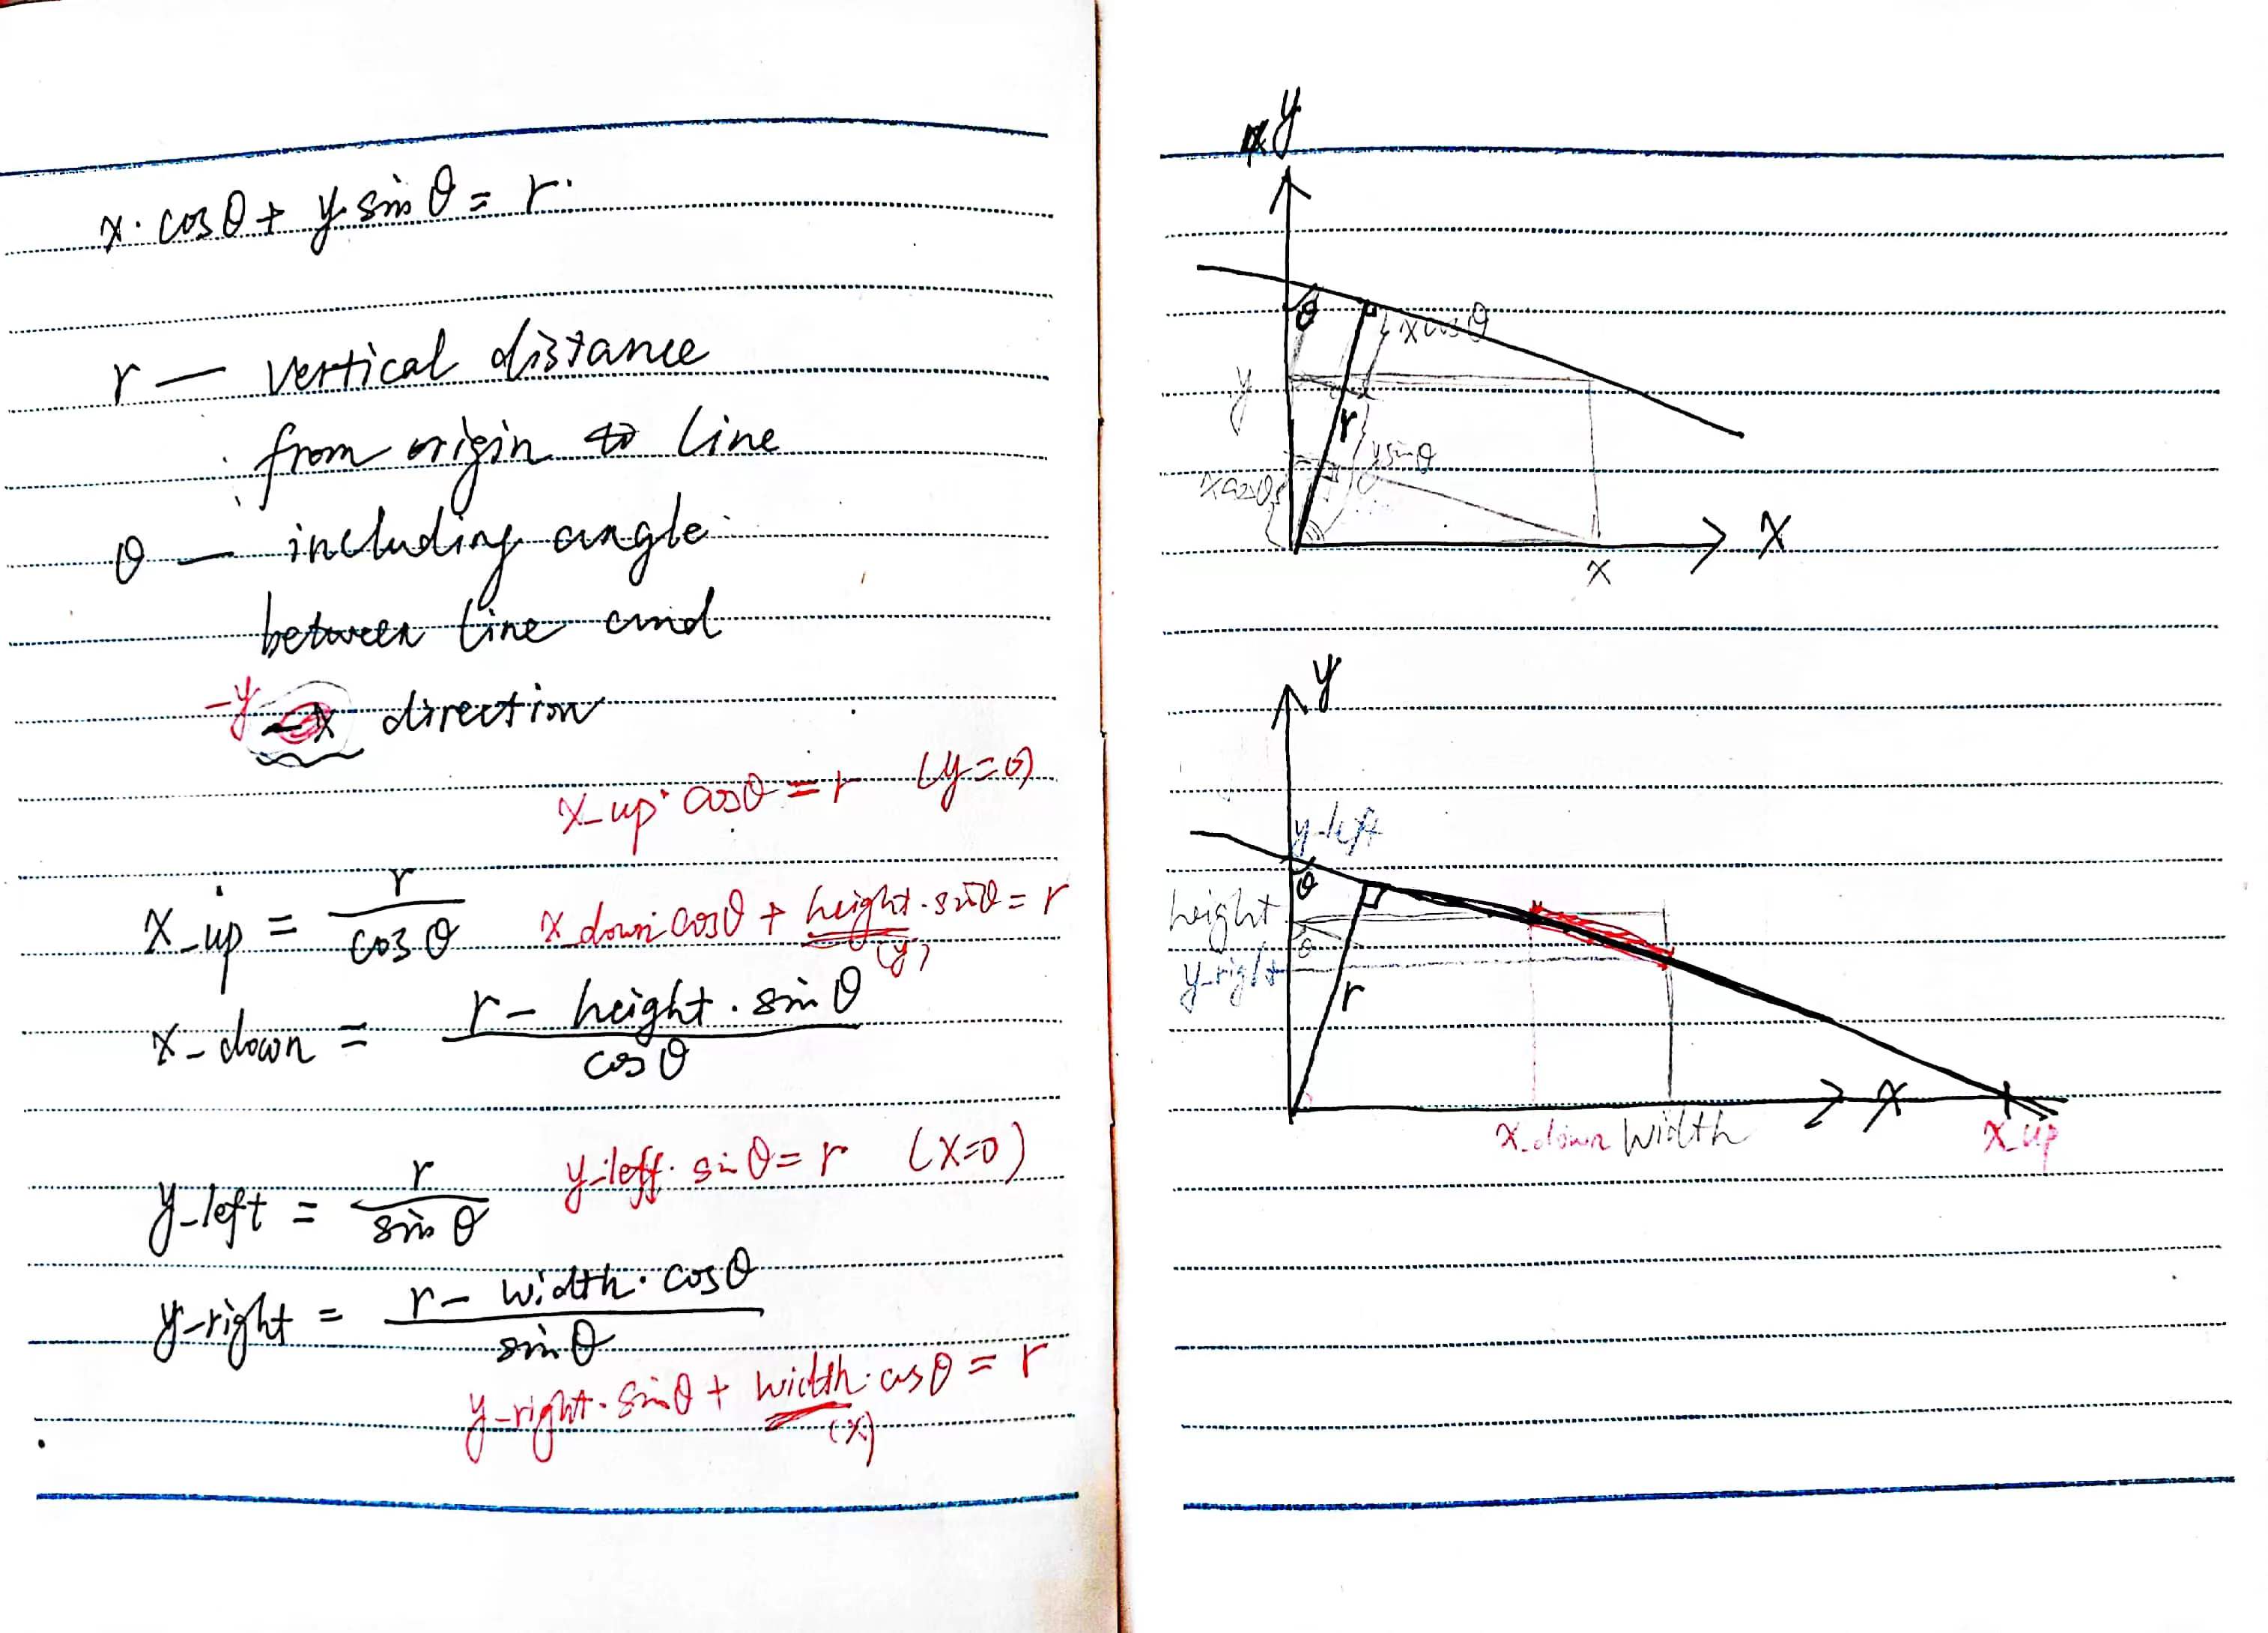 x · cosθ + y · sinθ = r
r — vertical distance
from origin to line
θ — including angle
between line and
-y -x direction
x_up · cosθ = r (y=0)
x_up = r / cosθ
x_down · cosθ + height · sinθ = r
(y)
x_down = r - height · sinθ / cosθ
y_left · sinθ = r (x=0)
y_left = r / sinθ
y_right = r - width · cosθ / sinθ
y_right · sinθ + width · cosθ = r
(x)
y
θ
xcosθ
y
r
ysinθ
xcosθ
X
x
y
y-left
θ
height
θ
y-right
r
x
x_down
width
x_up